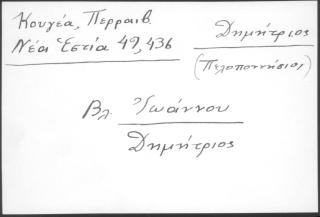 Κουγέα, Περραιβ.
Νέα Ἑστία 49, 436
Δημήτριος
(Πελοποννήσιος)
Βλ. Ἰωάννου
Δημήτριος